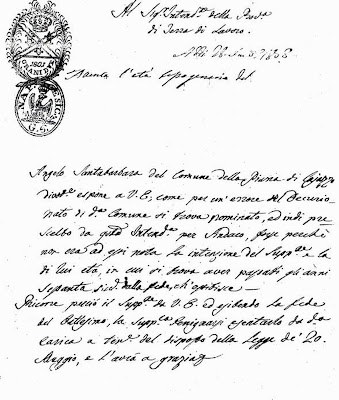 Al Sig.r Intend.te della Prov.a
di Terra di Lavoro.
1808
GRANI
NAP E SIC
G. 3
l'età
Angelo Santabarbara del Comune della Piana di Cajazzo
espone a V. E. come per un'errore del Decurio-
nato di d.o Comune si trova nominato, ed indi pre
scelto da Intend.te per Sindaco, forse perchè
non era ad essi nota la intenzione del Supp.te e la
di lui età, in cui si trova aver passati gli anni
settanta dalla fede, ch'esibisce
Ricorre perciò il Supp.te da V. E. ed esibendo la fede
del Battesimo, la supp.ca benignarsi esentarlo da d.a
carica a ten.e del disposto della Legge de' 20.
Maggio, e l'avrà a grazia